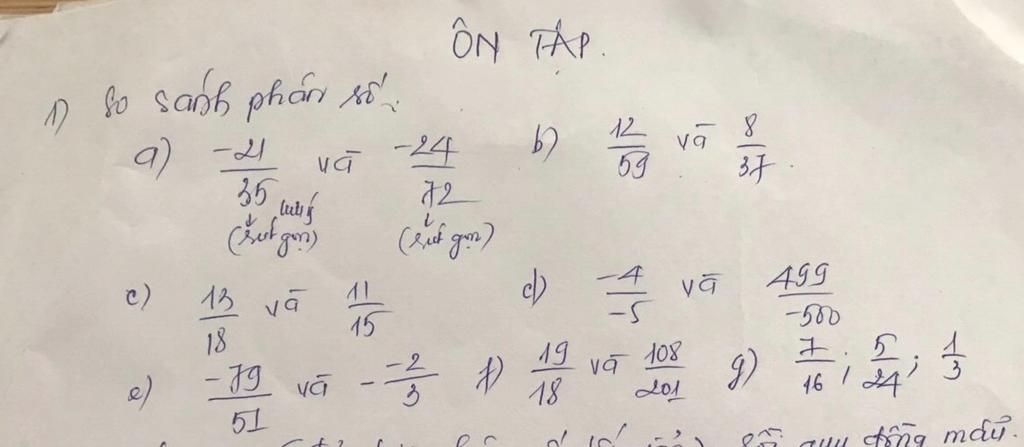 ÔN TẬP.
1) So sánh phân số.
a) -21/35 và -24/72 b) 12/59 và 8/37.
lưu ý
(rút gọn) (rút gọn)
c) 13/18 và 11/15 d) -4/-5 và 499/-500
e) -79/51 và - -2/3 f) 19/18 và 108/201 g) 7/16 ; 5/24 ; 1/3
quy đồng mẫu.